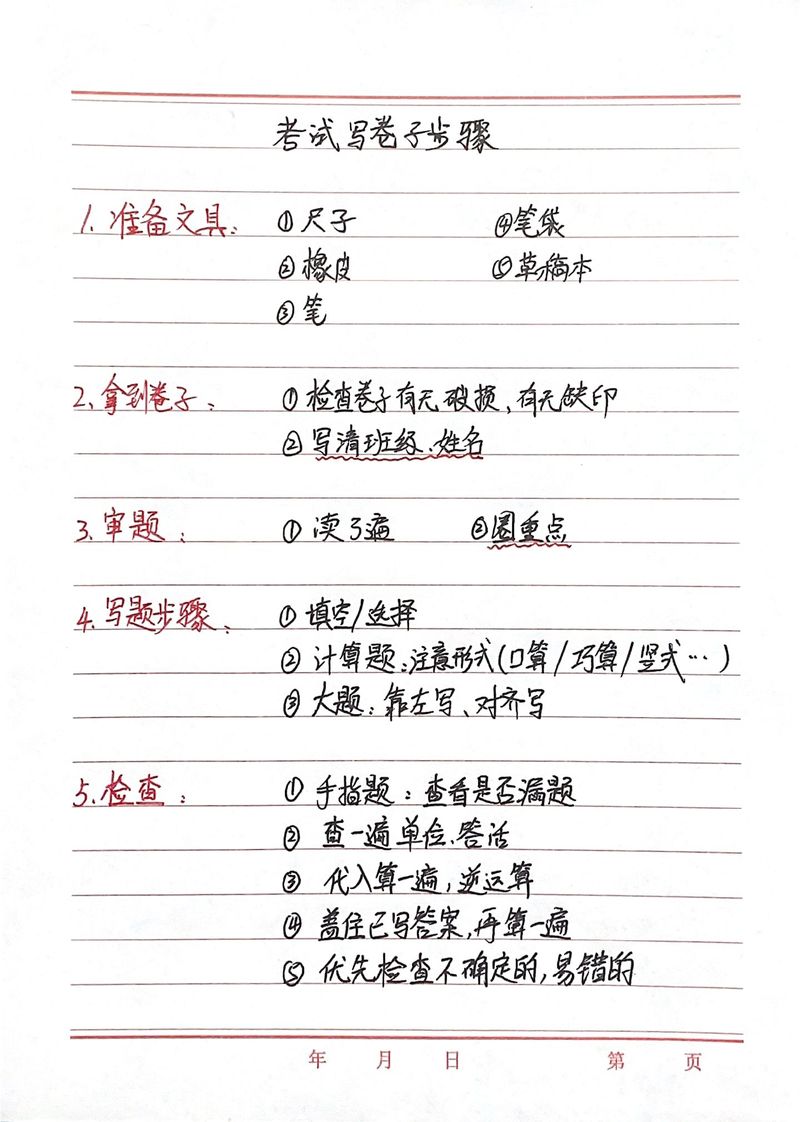 考试写卷子步骤
1. 准备文具： ①尺子 ④笔袋
②橡皮 ⑤草稿本
③笔
2、拿到卷子： ①检查卷子有无破损、有无缺印
②写清班级、姓名
3.审题： ①读3遍 ②圈重点
4.写题步骤： ①填空/选择
②计算题：注意形式(口算/巧算/竖式…)
③大题：靠左写、对齐写
5.检查： ①手指题：查看是否漏题
②查一遍单位、答话
③代入算一遍，逆运算
④盖住已写答案，再算一遍
⑤优先检查不确定的，易错的
年 月 日 第 页